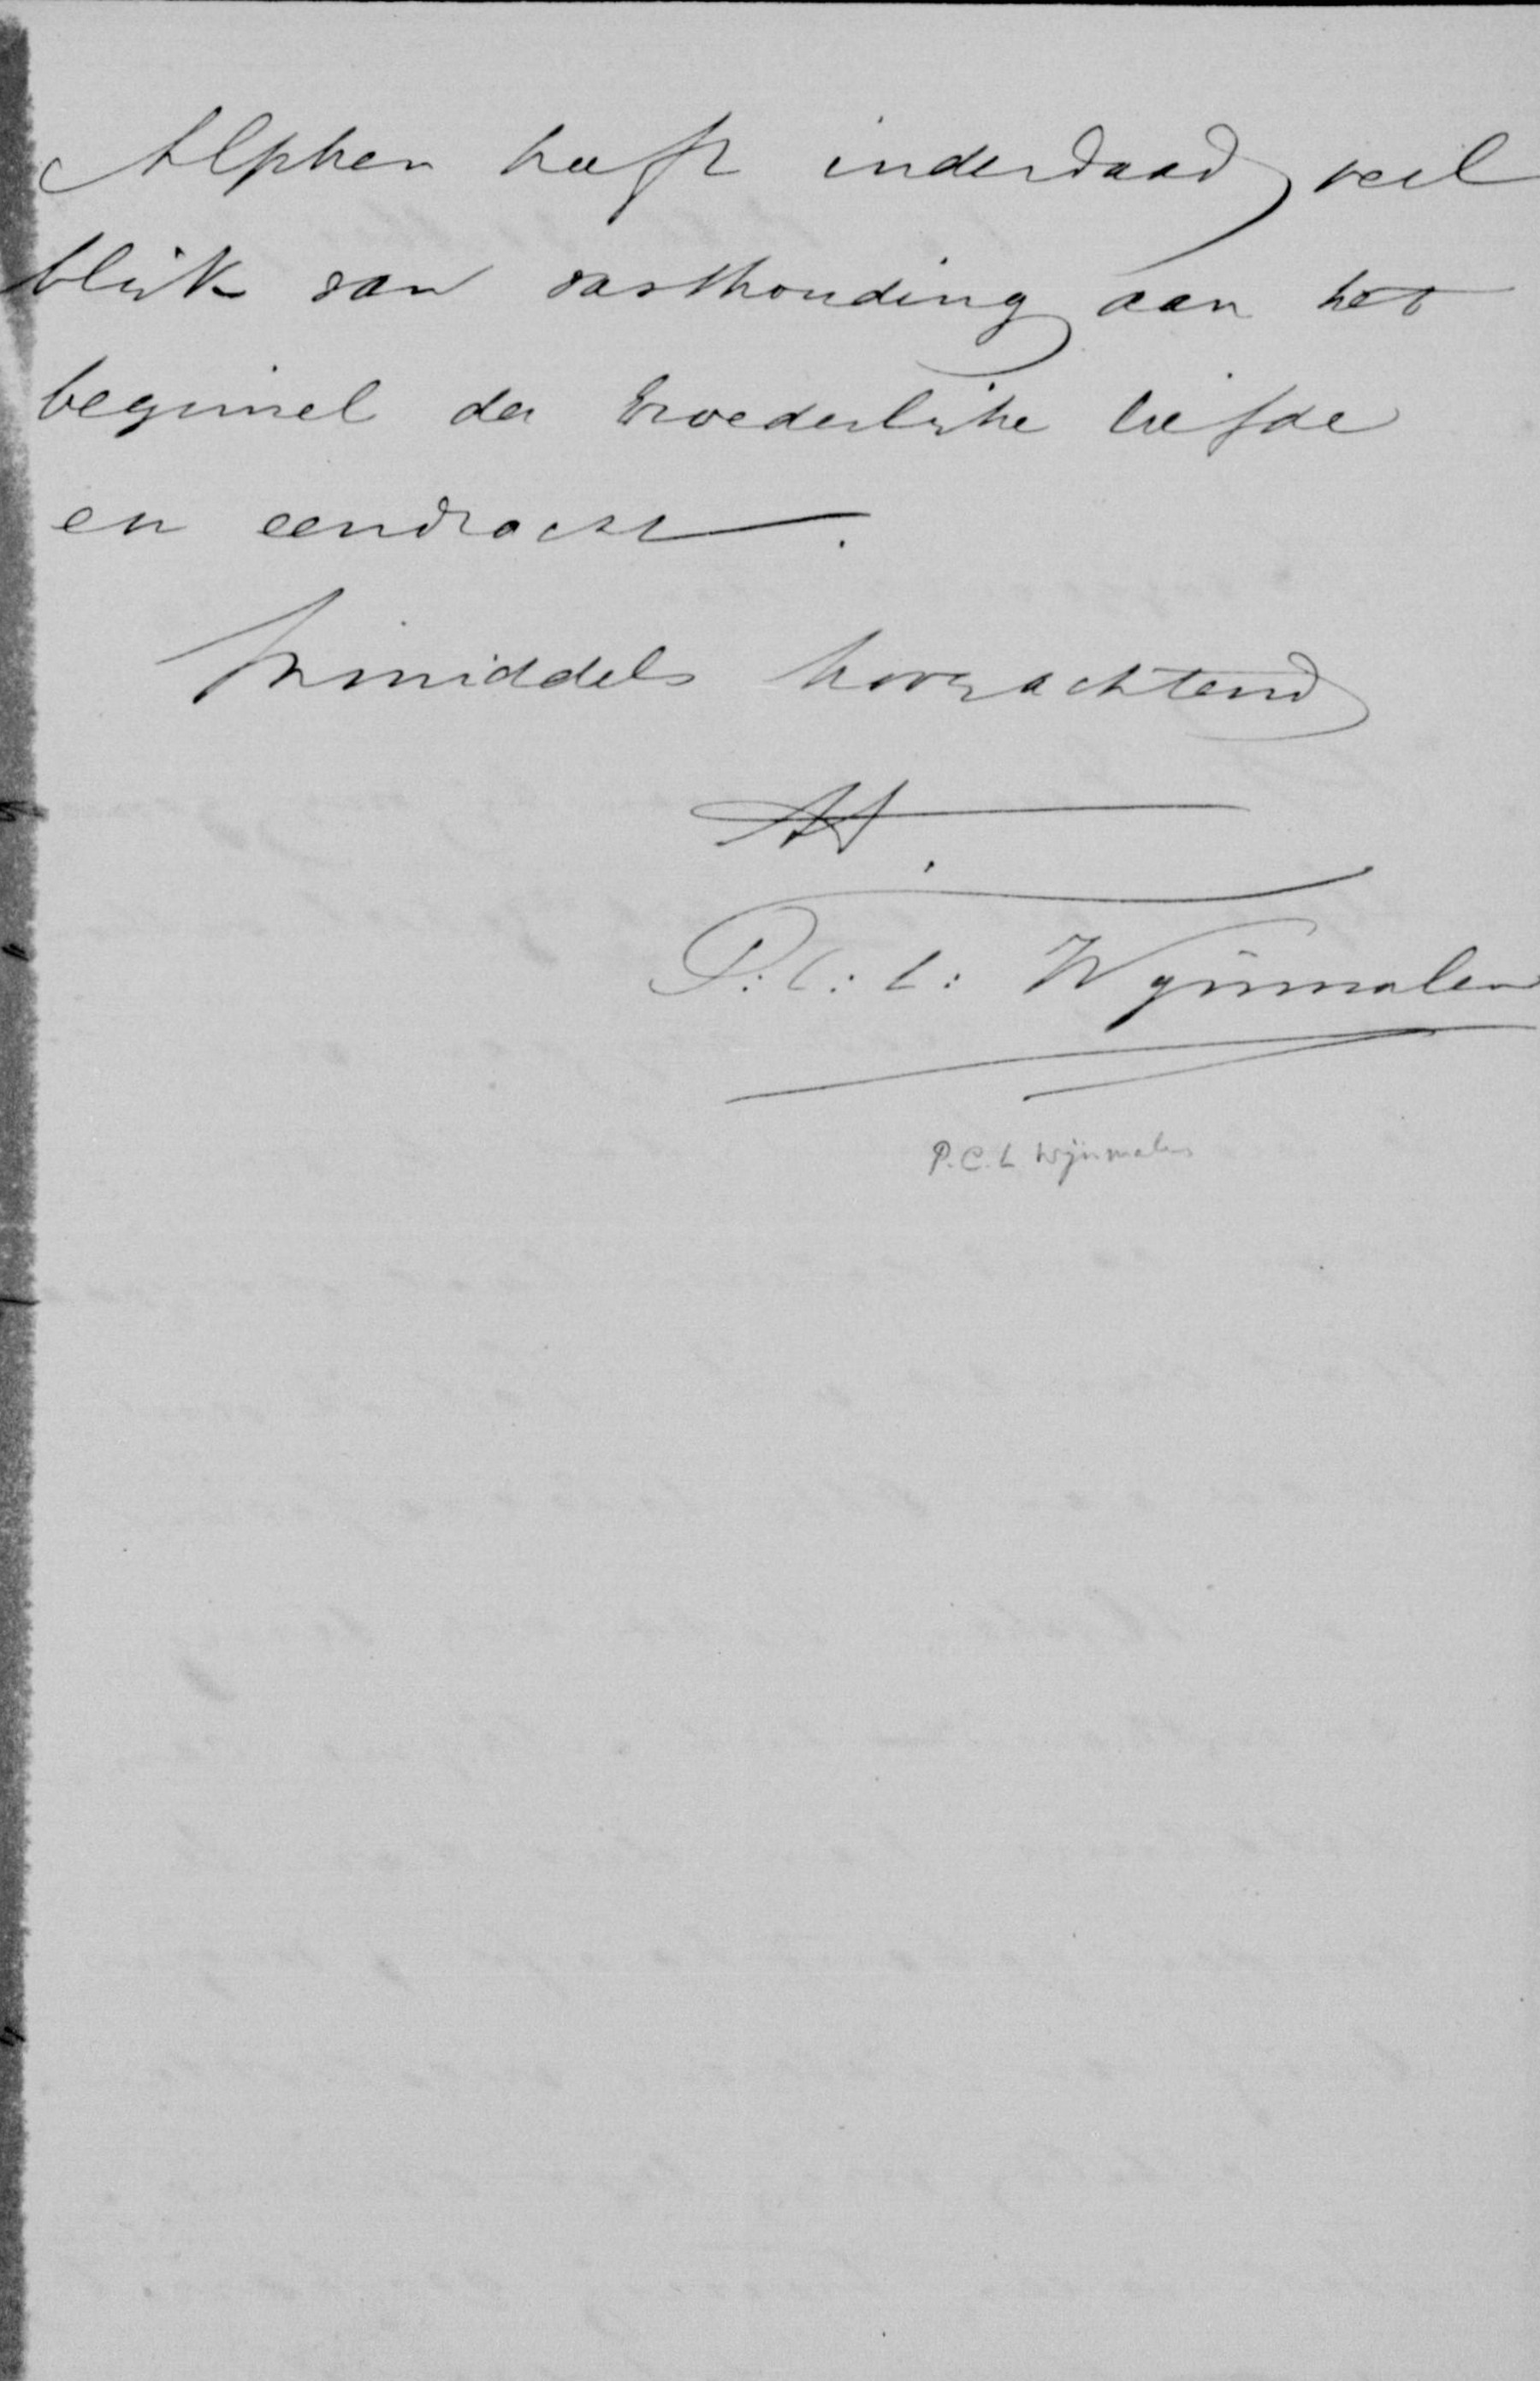 Alphen heeft inderdaad veel
blijk van vasthouding aan het
beginsel der broederlijke liefde
en eendracht.
Inmiddels hoogachtend
P: C: L: Wijnmalen
P. C. L Wijnmalen